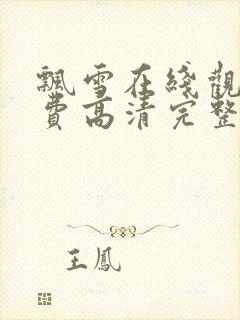 飄雪在綫觀
費高清完整
王鳳